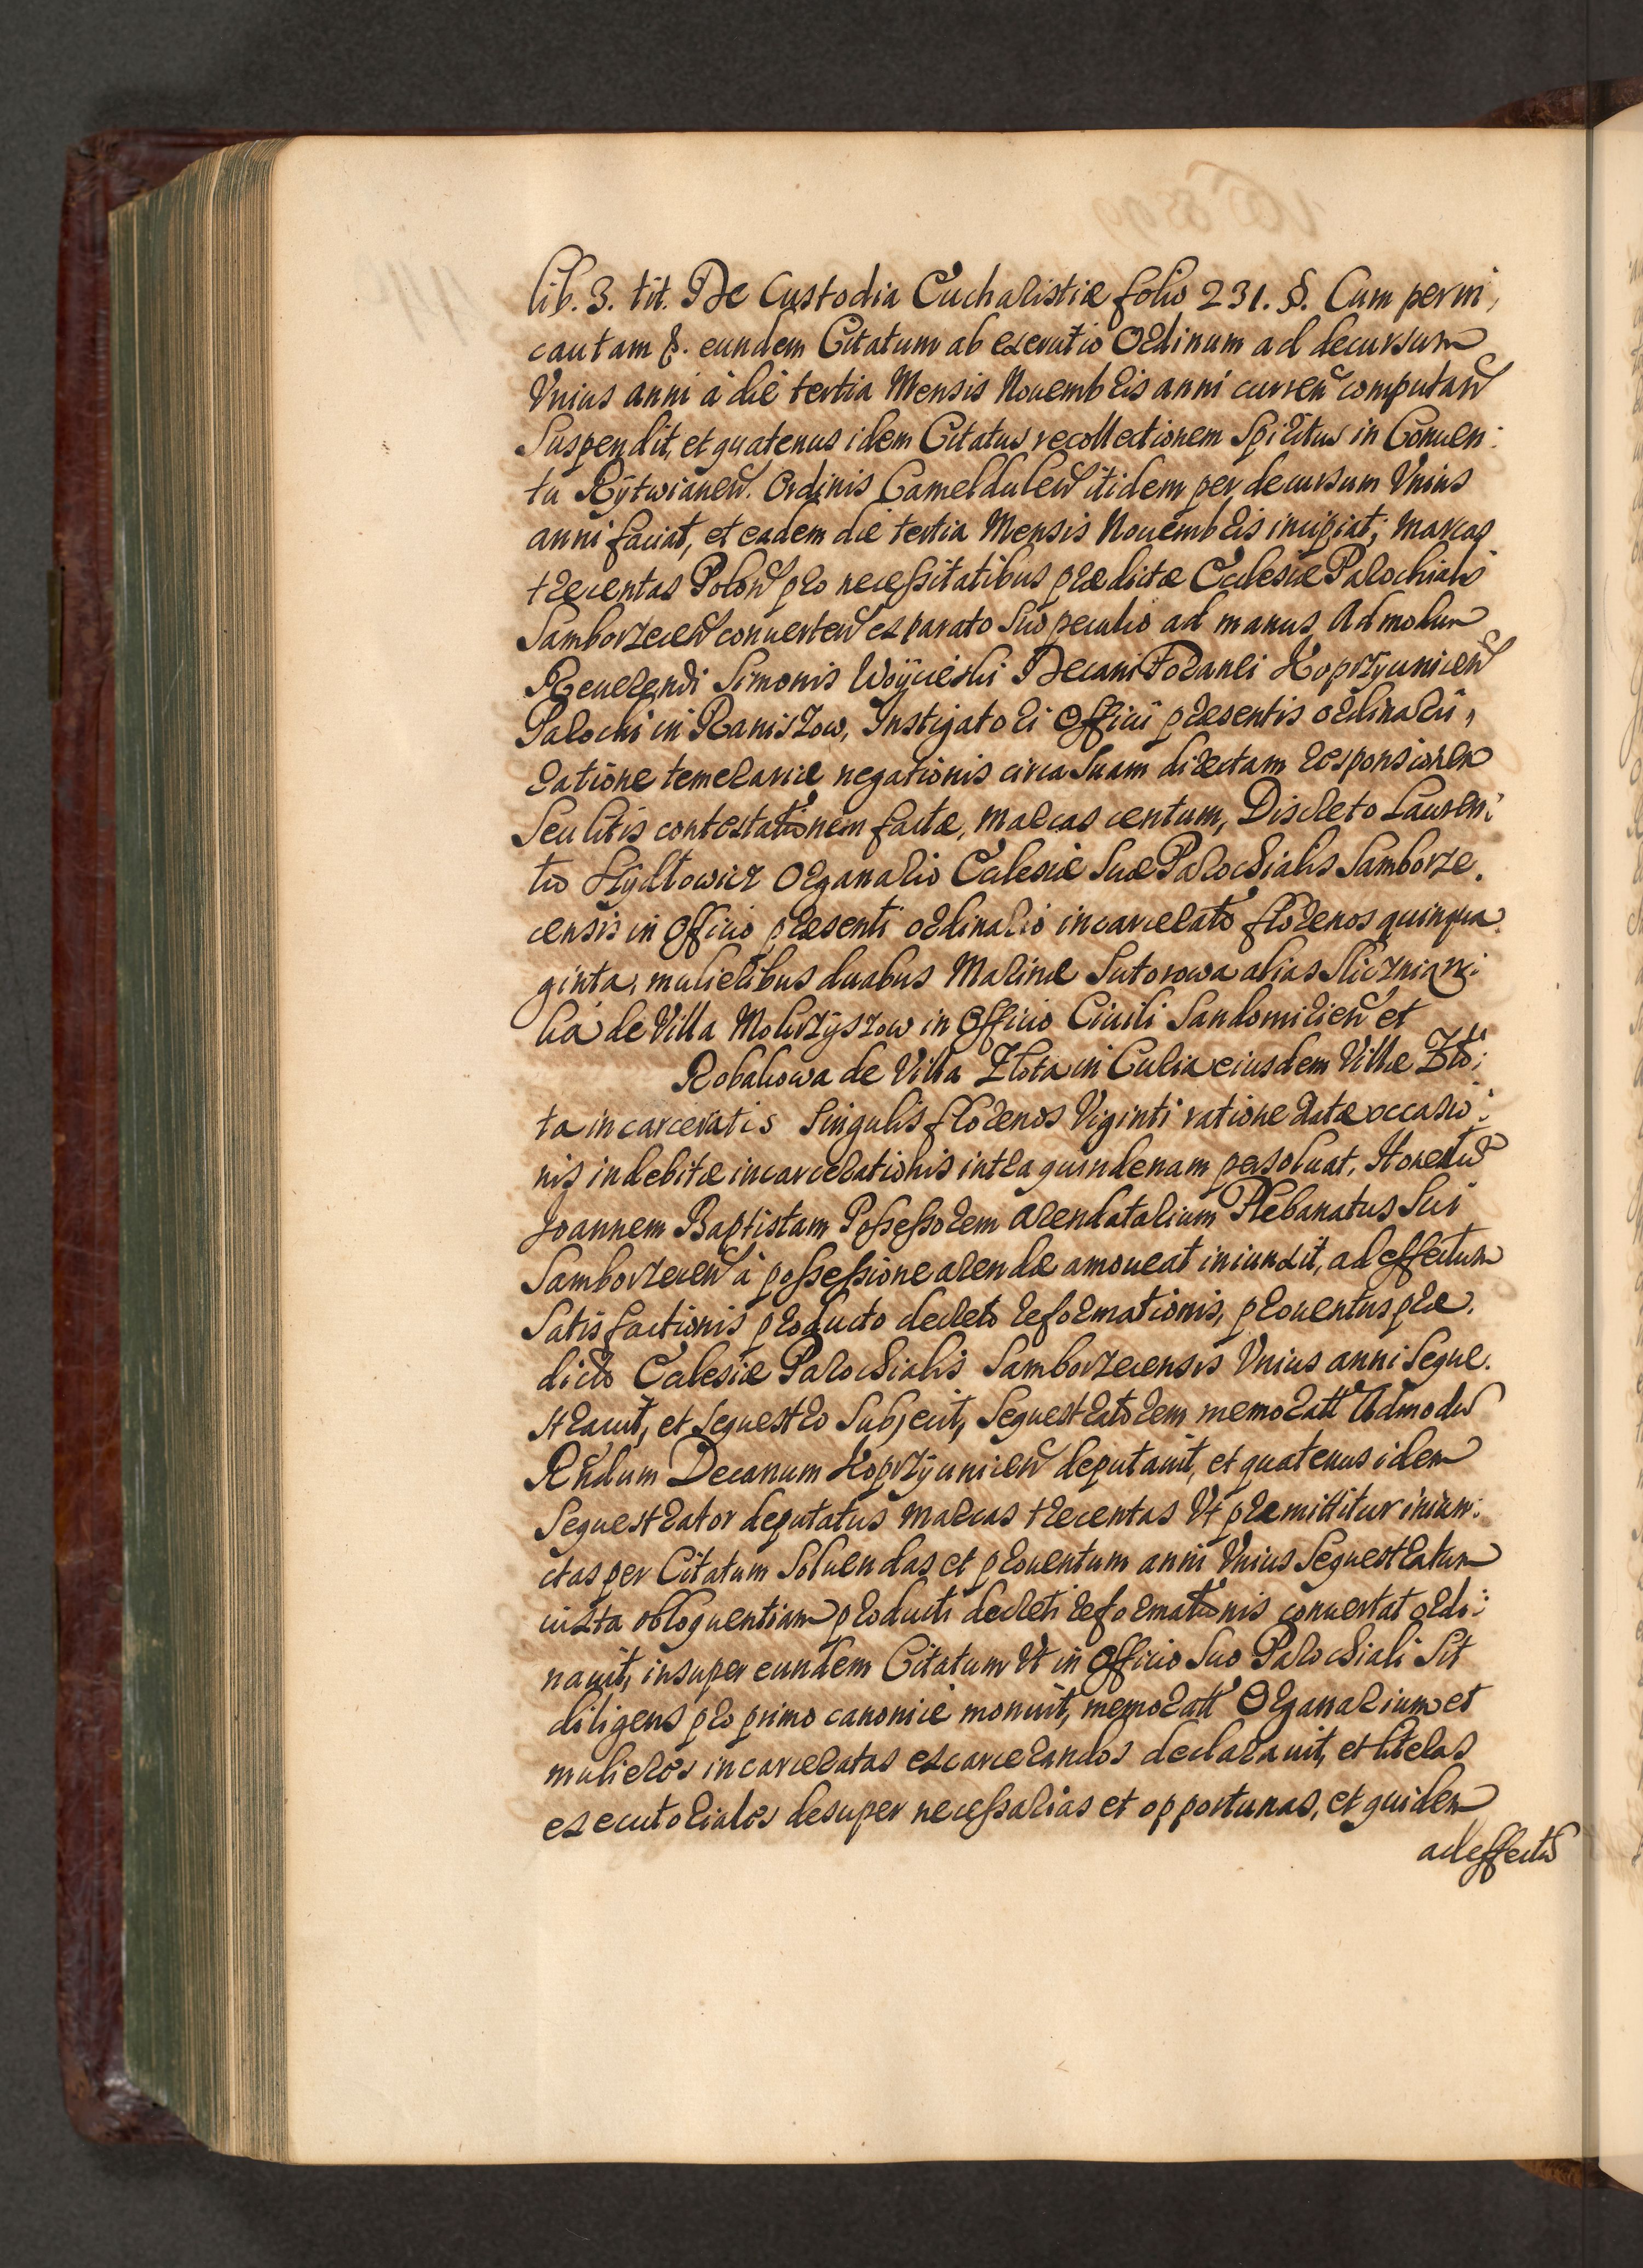 lib. 3. tit. De Custodia Eucharistiæ folio 231. §. Cum perni,
cautam §. eundem Citatum ab exerutio Ordinum ad decursum
Vnius anni à die tertia Mensis Nouembris anni curren computan
Suspendit, et quatenus idem Citatus recollectionem Spiritus in Conuen:
tu Rÿtwianen. Ordinis Camaldulen itidem per decursum Vnius
anni faciat, et eadem die tertia Mensis Nouembris incipiat; marcas
trecentas Polon pro necessitatibus prædictæ Ecclesiæ Parochialis
Samborzecen conuerten ex parato Suo peculio ad manus Admodum
Reuerendi Simonis Woÿcieski Decani Foranei Koprzyunicen
Parochi in Raniszow, Instigatori Officii præsentis ordinarii,
ratione temerariæ negationis circa Suam directam responsionem
Seu litis contestationem factæ, marcas centum, Discreto Lauren:
tio Hÿdlowicz Organario Ecclesiæ Suæ Parochialis Samborze.
censis in Officio præsenti ordinario incarcerato florenos quinqua
ginta, mulieribus duabus Marinæ Sutorowa alias Sliczniani:
ka de Villa Mokrzÿszow in Officio Ciuili Sandomirien et
Robakowa de Villa Zlota in Curia eiusdem Villæ Zło:
ta incarceratis Singulis florenos Viginti ratione datæ occasio:
nis indebitæ incarcerationis intra quindenam persoluat, Honestu
Joannem Baptistam Possessorem arendatarium Plebanatus Sui
Samborzecen à possessione arendæ amoueat iniunxit, ad effectum
Satisfactionis producto decreto reformationis, prouentus præ.
dictæ Ecclesiæ Parochialis Samborzecensis Vnius anni Seque.
strauit, et Sequestro Subjecit, Sequestratorem memoratt Admodu
Rndum Decanum Koprzÿunicen deputauit, et quatenus idem
Sequestrator deputatus marcas trecentas Vt præmittitur iniun:
ctas per Citatum Soluendas et prouentum anni Vnius Sequestratum
iuxta obloquentiam producti decreti reformationis conuertat ordi:
nauit, insuper eundem Citatum Vt in Officio Suo Parochiali Sit
diligens pro primo canonicè monuit, memoratt Organarium et
mulieres incarceratas excarcerandos declarauit, et literas
executoriales desuper necessarias et opportunas, et quidem
ad effectu